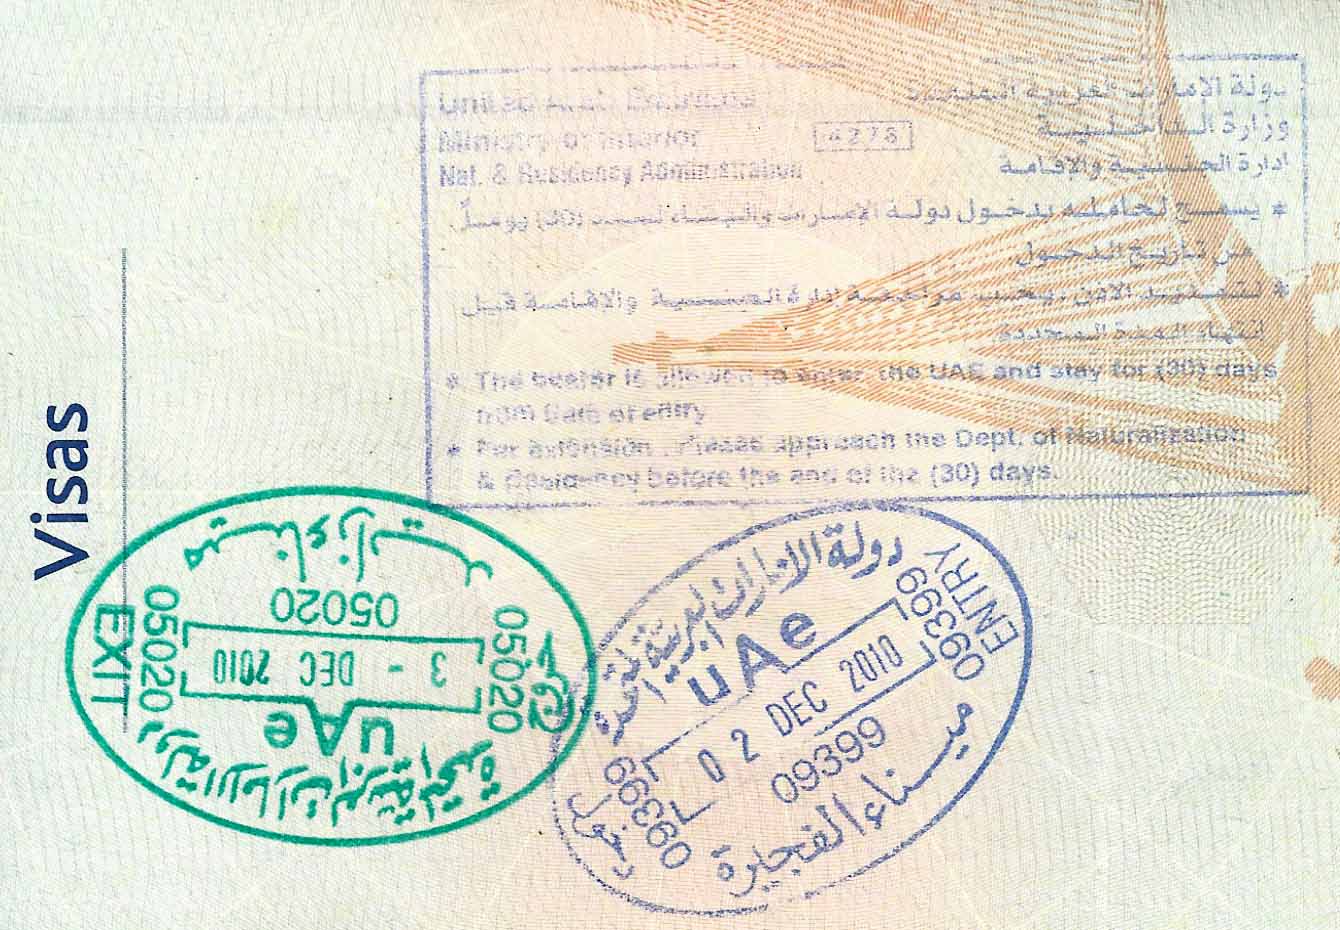 Visas
United Arab Emirates
دولة الإمارات العربية المتحدة
Ministry of Interior
4276
وزارة الداخلية
Nat. & Residency Administration
ادارة الجنسية والإقامة
* يسمح لحامله بدخول دولة الإمارات والبقاء لمدة (30) يوماً
من تاريخ الدخول
* لتمديد الاذن، يجب مراجعة ادارة الجنسية والإقامة قبل
انتهاء المدة المحددة
* The bearer is allowed to enter the UAE and stay for (30) days
from date of entry
* For extension, Please approach the Dept. of Naturalization
& Residency before the end of the (30) days.
دولة الإمارات العربية المتحدة
uAe
EXIT
05020
3 - DEC 2010
05020
خروج
05020
ميناء زايد
دولة الإمارات العربية المتحدة
uAe
ENTRY
09399
02 DEC 2010
09399
دخول
09399
ميناء الفجيرة